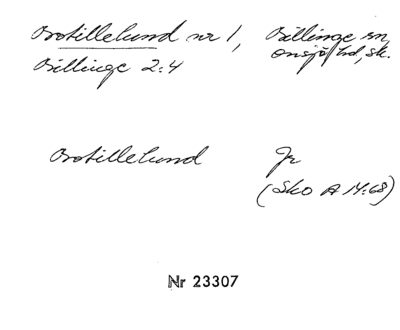 Botillelund nr 1, Billinge sn,
Billinge 2:4 Onsjö hd, sk.
Botillelund Jr
(Sko A 14:68)
Nr 23307